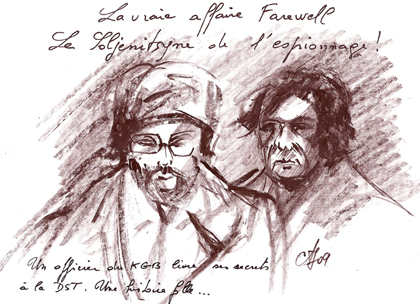 La vraie affaire Farewell
Le Soljenitsyne de l'espionnage !
Un officier du KGB livre ses secrets
à la DST. Une histoire folle...